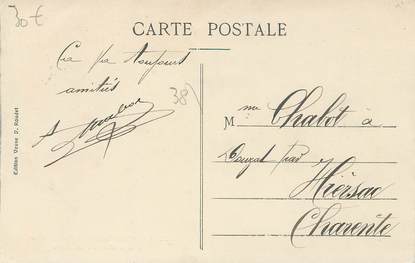 30€
CARTE POSTALE
Ça va toujours
amitiés
38
Edition Veuve P. Roudet
M me Chabot à
Douzat par
Hiersac
Charente